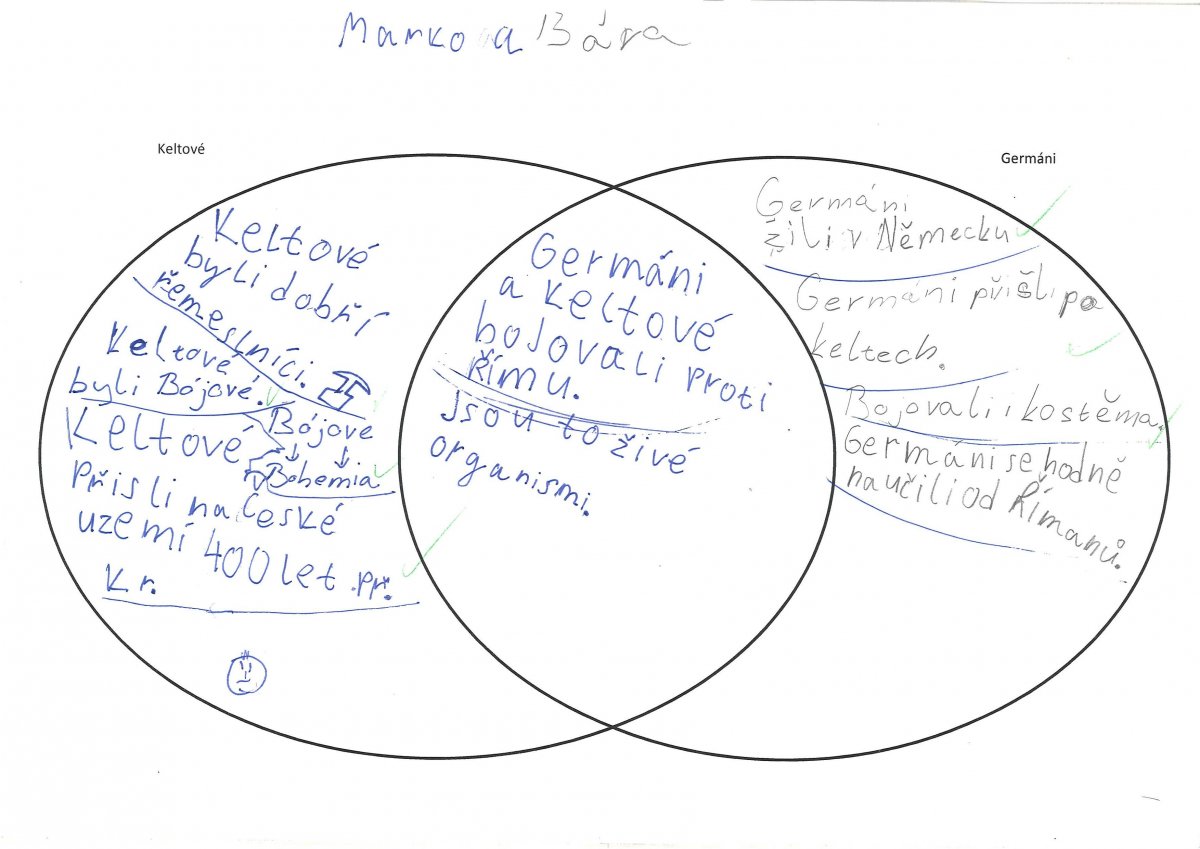 Marko a Bára
Keltové
Germáni
Keltové
byli dobří
řemeslníci.
Keltové
byli Bójové.
Bójove
Bohemia
Keltové
Přisli na České
uzemí 400 let př.
Kr.
Germáni
a Keltové
bojovali proti
Římu.
Jsou to živé
organismi.
Germáni
žili v Německu
Germáni přišli po
keltech.
Bojovali i kostěma.
Germáni se hodně
naučili od Římanů.